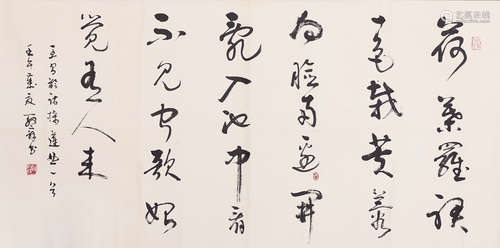 荷葉羅裙
一色裁芙蓉
向臉兩邊開
亂入池中看
不見聞歌始
覺有人來
王昌齡詩採蓮曲一首
壬午夏書